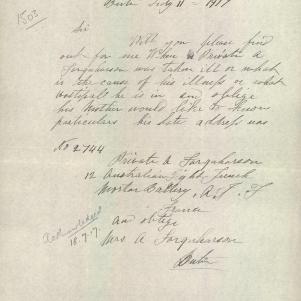 1503
July 11 - 1917
Sir
Will you please find
out for me When Private A
Farquharson was taken ill or what
is the cause of his illness or what
hospital he is in an oblige
his Mother would like to know
particulars his late address was
No 2744
Private A Farquharson
12 Australian Light Trench
Mortar Battery, A.I.F
France
an oblige
Mrs A Farquharson
Acknowledged
18.7.17.